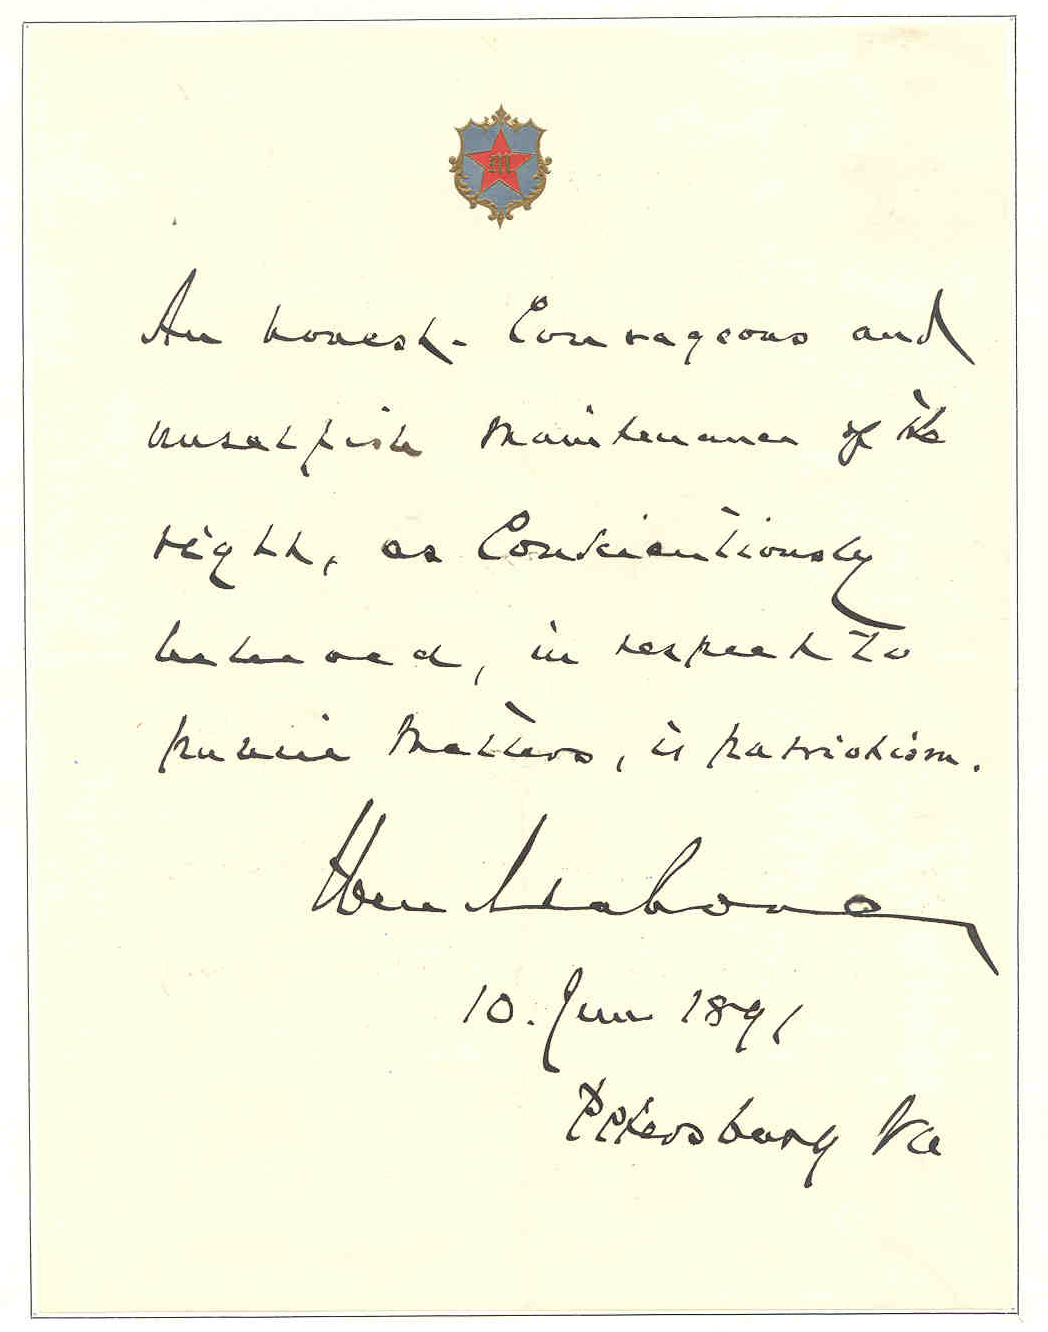 M
An honest - Courageous and
unselfish Maintenance of the
right, as Conscientiously
believed, in respect to
public Matters, is patriotism.
Wm Mahone
10. June 1891
Petersburg Va